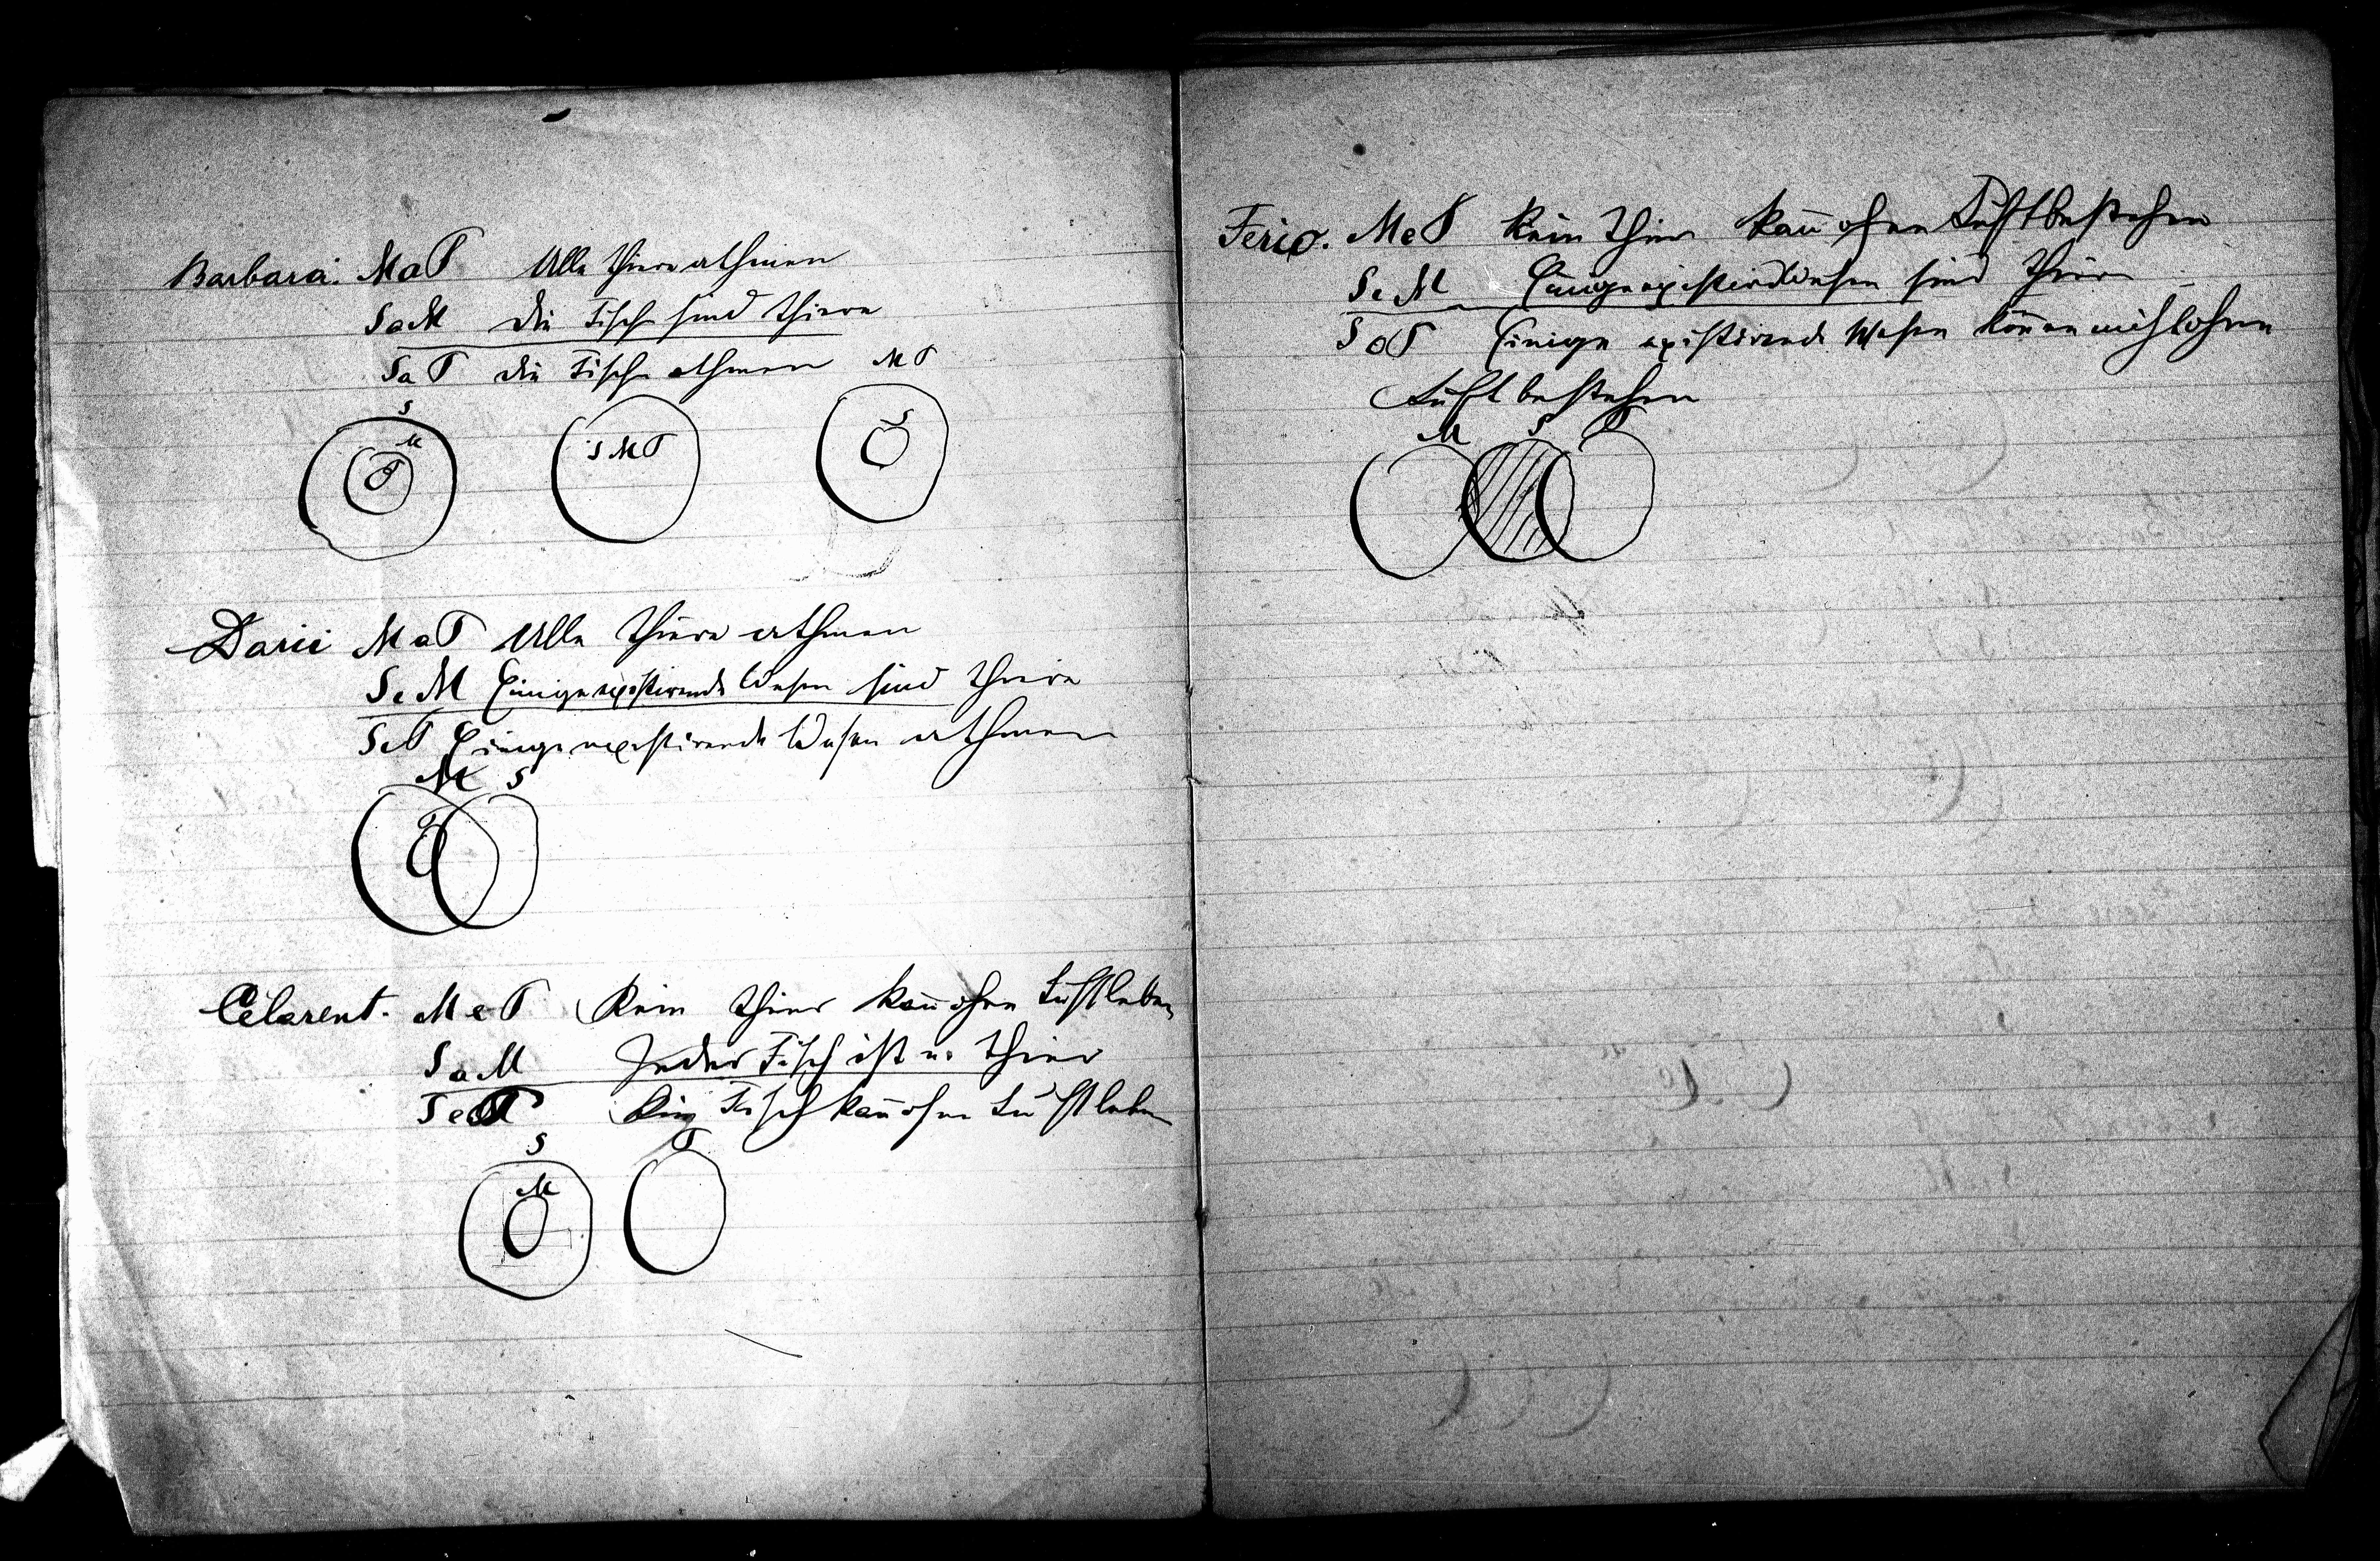 Barbara. MaP Alle Thiere athmen
SaM die Fische sind Thiere
SaP die Fische athmen
M P
S
M
P
S M P
S
Darii MaP Alle Thiere athmen
SiM Einige existirende Wesen sind Thiere
SiP Einige existirende Wesen athmen
M S
P
Celarent. MeP Kein Thier kañ ohne Luft leben
SaM Jeder Fisch ist e. Thier
SeP Kein Fisch kañ ohne Luft leben
S P
M
Ferio. MeP Kein Thier kañ ohne Luft bestehen
SiM Einige existirend Wesen sind Thiere
SoP Einige existirende Wesen köñen nicht ohne
Luft bestehen
M S P